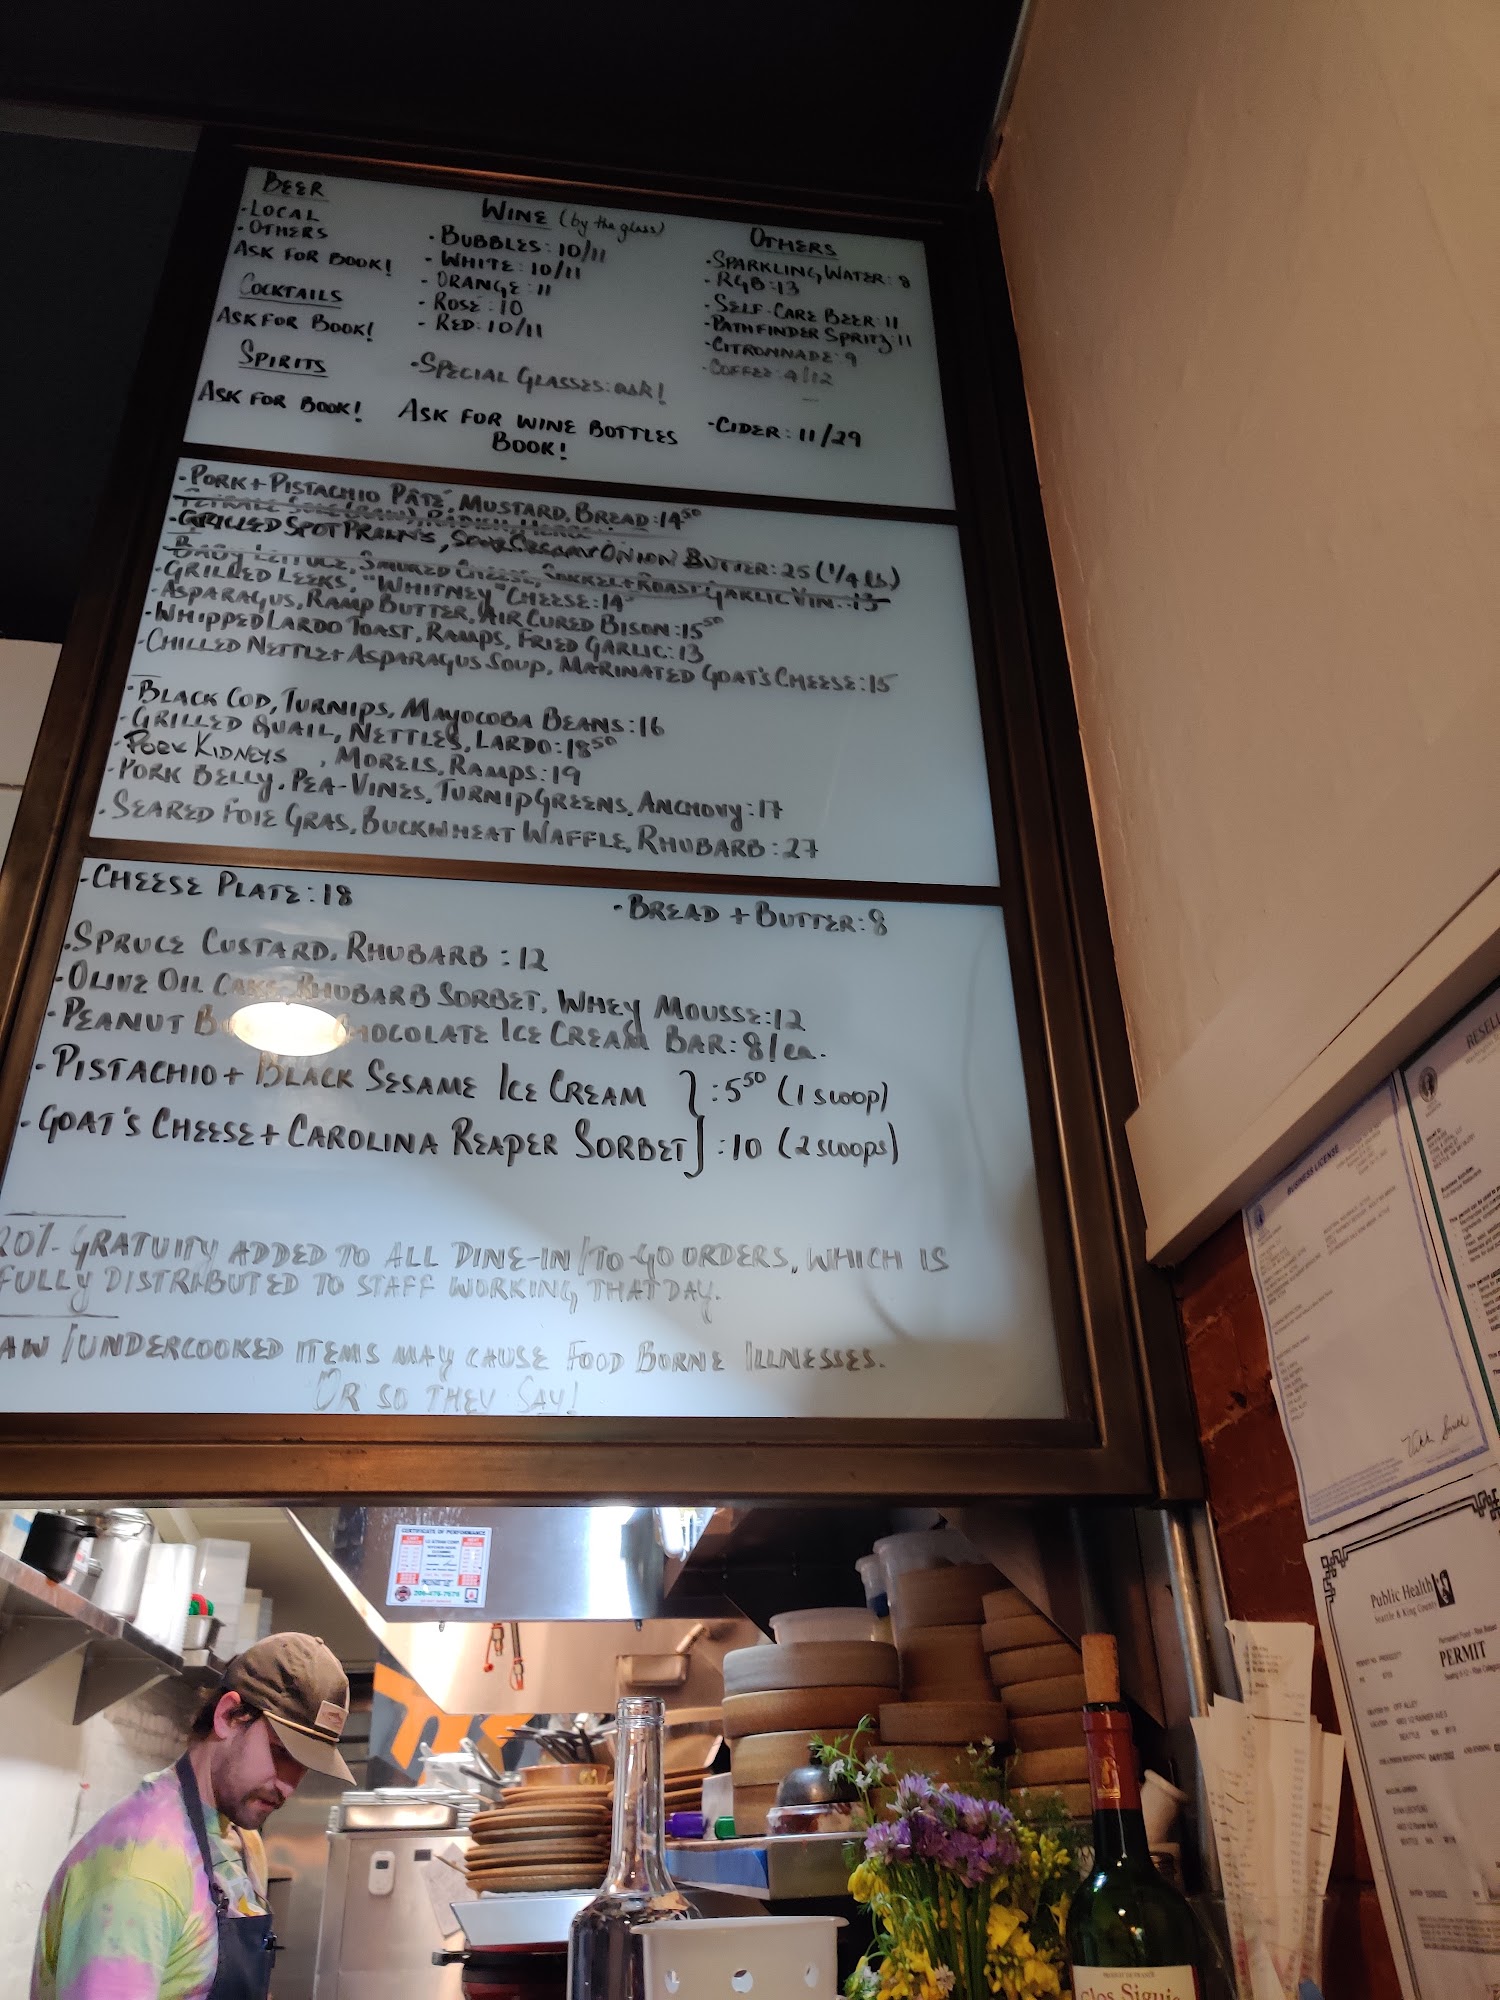 BEER
- LOCAL
- OTHERS
ASK FOR BOOK!
COCKTAILS
ASK FOR BOOK!
SPIRITS
ASK FOR BOOK!
WINE (by the glass)
- BUBBLES: 10/11
- WHITE: 10/11
- ORANGE: 11
- ROSÉ: 10
- RED: 10/11
- SPECIAL GLASSES: ask!
ASK FOR WINE BOTTLES
BOOK!
OTHERS
- SPARKLING WATER: 8
- RGB: 13
- SELF-CARE BEER: 11
- PATHFINDER SPRITZ: 11
- CITRONNADE: 9
- COFFEE: 4/12
- CIDER: 11/29
- PORK + PISTACHIO PÂTÉ, MUSTARD, BREAD: 14⁵⁰
PETRALE SOLE (RAW), RADISH,
- GRILLED SPOT PRAWNS, SOUR CREAM + ONION BUTTER: 25 (1/4 LB)
BABY LETTUCE, SMOKED CHEESE, SORREL + ROAST GARLIC VIN.: 13
- GRILLED LEEKS, "WHITNEY" CHEESE: 14
- ASPARAGUS, RAMP BUTTER, AIR CURED BISON: 15⁵⁰
- WHIPPED LARDO TOAST, RAMPS, FRIED GARLIC: 13
- CHILLED NETTLE + ASPARAGUS SOUP, MARINATED GOAT'S CHEESE: 15
- BLACK COD, TURNIPS, MAYOCOBA BEANS: 16
- GRILLED QUAIL, NETTLES, LARDO: 18⁵⁰
- PORK KIDNEYS, MORELS, RAMPS: 19
- PORK BELLY, PEA-VINES, TURNIP GREENS, ANCHOVY: 17
- SEARED FOIE GRAS, BUCKWHEAT WAFFLE, RHUBARB: 27
- CHEESE PLATE: 18
- BREAD + BUTTER: 8
- SPRUCE CUSTARD, RHUBARB: 12
- OLIVE OIL CAKE, RHUBARB SORBET, WHEY MOUSSE: 12
- PEANUT CHOCOLATE ICE CREAM BAR: 8/ea.
- PISTACHIO + BLACK SESAME ICE CREAM } : 5⁵⁰ (1 scoop)
- GOAT'S CHEESE + CAROLINA REAPER SORBET } : 10 (2 scoops)
20% GRATUITY ADDED TO ALL DINE-IN/TO-GO ORDERS, WHICH IS
FULLY DISTRIBUTED TO STAFF WORKING THAT DAY.
AW/UNDERCOOKED ITEMS MAY CAUSE FOOD BORNE ILLNESSES.
OR SO THEY SAY!
CERTIFICATE OF PERFORMANCE
206-476-7676
BUSINESS LICENSE
RESELL
Public Health
Seattle & King County
PERMIT
PRODUCT OF FRANCE
Clos Siguie